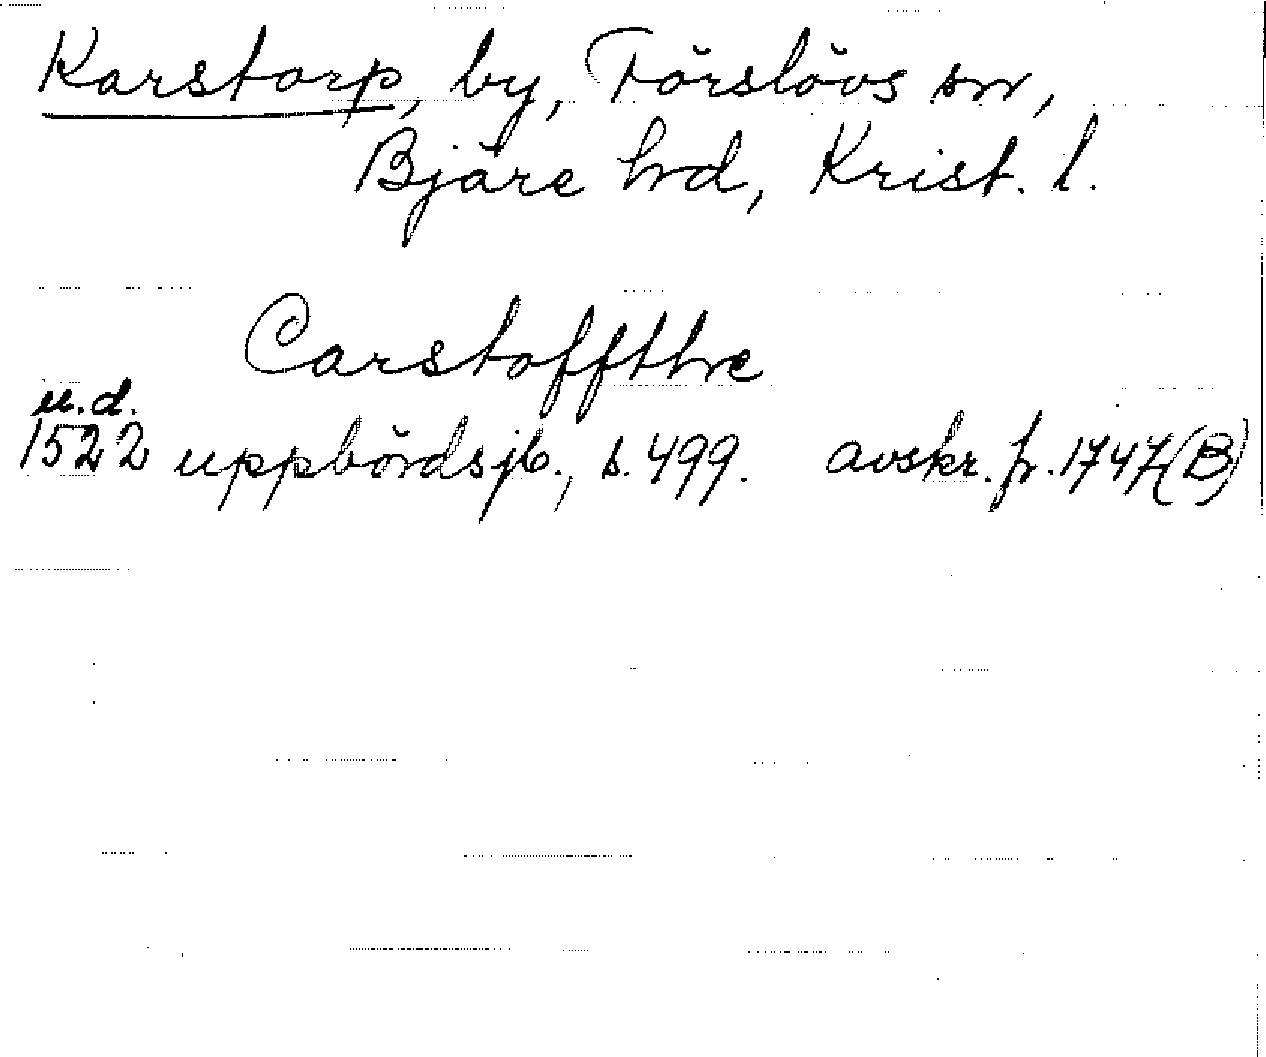 Karstorp, by, Förslövs sn,
Bjäre hd, Krist. l.
Carstoffthe
u.d.
1522 uppbördsjb., s. 499. avskr. fr. 1747 (B)